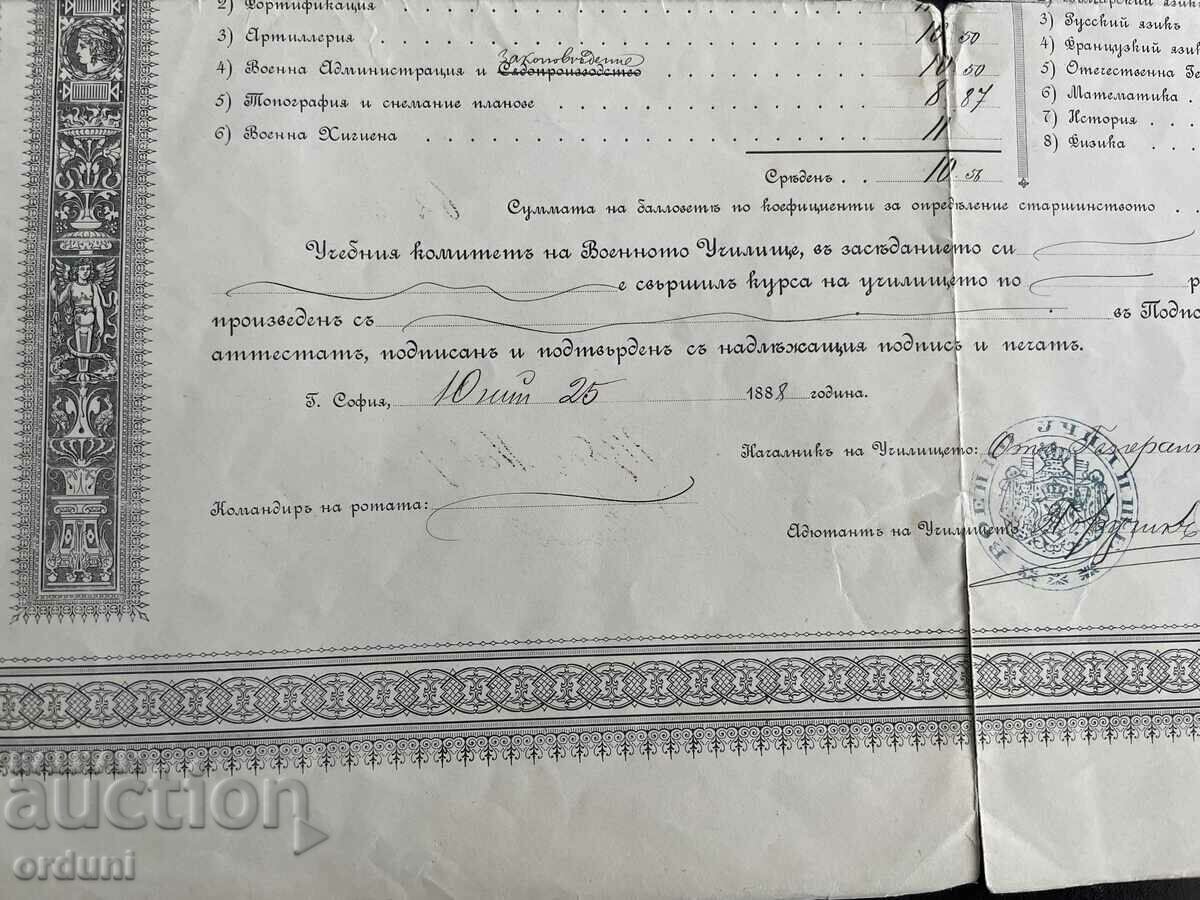 2) Фортификация
3) Артиллерия 10 50
законовѣдение
4) Военна Администрация и Сѫдопроизводство 10 50
5) Топография и снемание планове 8 87
6) Военна Хигиена 11
Срѣденъ 10 56
Русский языкъ
3) Русский языкъ
4) Французкий языкъ
5) Отечествена
6) Математика
7) История
8) Физика
Суммата на балловетѣ по коефициенти за опредѣление старшинството
Учебния комитетъ на Военното Училище, въ засѣданието си
е свършилъ курса на училището по
произведенъ съ въ Подпо
аттестатъ, подписанъ и подтвърденъ съ надлѣжащия подпись и печатъ.
Г. София, Юний 25 1888 година.
Началникъ на Училището: Отъ Генералн
Командиръ на ротата:
Адютантъ на Училището: Поручикъ
ВОЕННО УЧИЛИЩЕ
auction
orduni